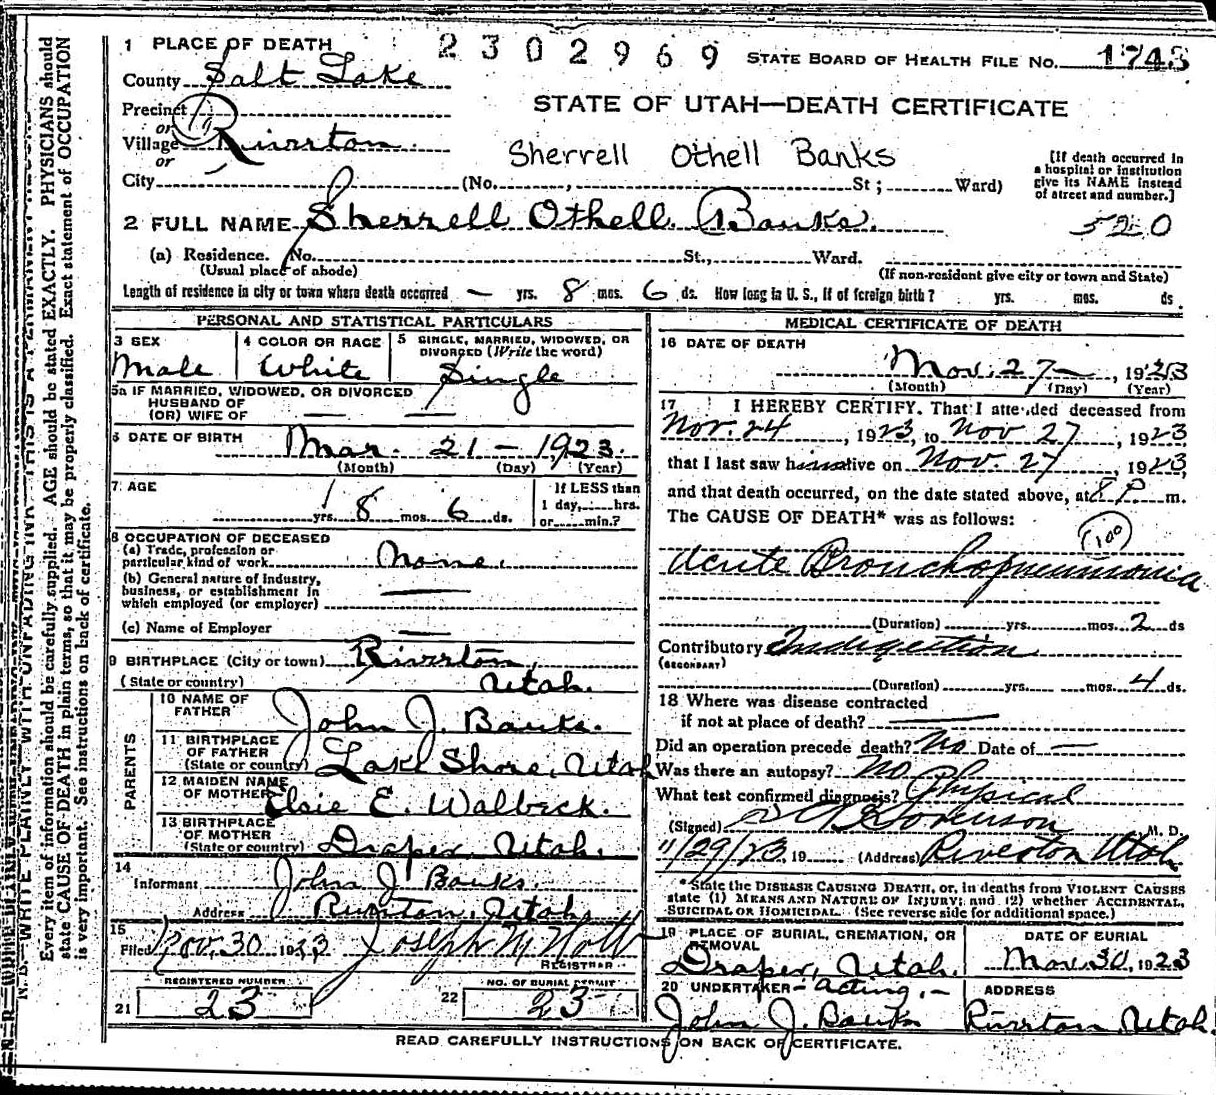 1 PLACE OF DEATH
2302969
STATE BOARD OF HEALTH FILE No. 1743
County Salt Lake
STATE OF UTAH—DEATH CERTIFICATE
Precinct
or
Village Riverton.
or
Sherrell Othell Banks
[If death occurred in
a hospital or institution
give its NAME instead
of street and number.]
City (No. , St ; Ward)
520
2 FULL NAME Sherrell Othell Banks.
(a) Residence. No. St., Ward.
(Usual place of abode) (If non-resident give city or town and State)
Length of residence in city or town where death occurred — yrs. 8 mos. 6 ds. How long in U. S., if of foreign birth? yrs. mos. ds.
PERSONAL AND STATISTICAL PARTICULARS
3 SEX
Male
4 COLOR OR RACE
White
5 SINGLE, MARRIED, WIDOWED, OR
DIVORCED (Write the word)
Single
5a IF MARRIED, WIDOWED, OR DIVORCED
HUSBAND OF
(OR) WIFE OF — —
6 DATE OF BIRTH Mar. 21 — 1923.
(Month) (Day) (Year)
7 AGE
yrs. 8 mos. 6 ds.
If LESS than
1 day, hrs.
or min.?
8 OCCUPATION OF DECEASED
(a) Trade, profession or
particular kind of work None.
(b) General nature of Industry,
business, or establishment in
which employed (or employer) —
(c) Name of Employer —
9 BIRTHPLACE (City or town) Riverton,
(State or country) Utah.
PARENTS
10 NAME OF
FATHER John J. Banks.
11 BIRTHPLACE
OF FATHER
(State or country) Lake Shore, Utah
12 MAIDEN NAME
OF MOTHER Elsie E. Walbeck.
13 BIRTHPLACE
OF MOTHER
(State or country) Draper, Utah.
14
Informant John J. Banks.
Address Riverton, Utah.
15
Filed Nov. 30 1923 Joseph M. Holt
REGISTRAR
REGISTERED NUMBER
21 23
NO. OF BURIAL PERMIT
22 23
MEDICAL CERTIFICATE OF DEATH
16 DATE OF DEATH
Nov. 27 — , 1923
(Month) (Day) (Year)
17 I HEREBY CERTIFY, That I attended deceased from
Nov. 24 , 1923, to Nov 27 , 1923
that I last saw him alive on Nov. 27 , 1923,
and that death occurred, on the date stated above, at 8 P. m.
The CAUSE OF DEATH* was as follows:
100
Acute Bronchopneumonia
(Duration) yrs. mos. 2 ds
Contributory Indigestion
(SECONDARY)
(Duration) yrs. mos. 4 ds.
18 Where was disease contracted
if not at place of death? —
Did an operation precede death? No Date of —
Was there an autopsy? No
What test confirmed diagnosis? Physical
(Signed) Sorenson M. D.
11/29/23 19 (Address) Riverton Utah
*State the DISEASE CAUSING DEATH, or, in deaths from VIOLENT CAUSES
state (1) MEANS AND NATURE OF INJURY; and (2) whether ACCIDENTAL,
SUICIDAL OR HOMICIDAL. (See reverse side for additional space.)
19 PLACE OF BURIAL, CREMATION, OR
REMOVAL
Draper, Utah.
DATE OF BURIAL
Nov. 30, 1923
20 UNDERTAKER — acting. —
John J. Banks
ADDRESS
Riverton, Utah.
READ CAREFULLY INSTRUCTIONS ON BACK OF CERTIFICATE.
N. B.—WRITE PLAINLY WITH UNFADING INK—THIS IS A PERMANENT RECORD
Every item of information should be carefully supplied. AGE should be stated EXACTLY. PHYSICIANS should
state CAUSE OF DEATH in plain terms, so that it may be properly classified. Exact statement of OCCUPATION
is very important. See instructions on back of certificate.